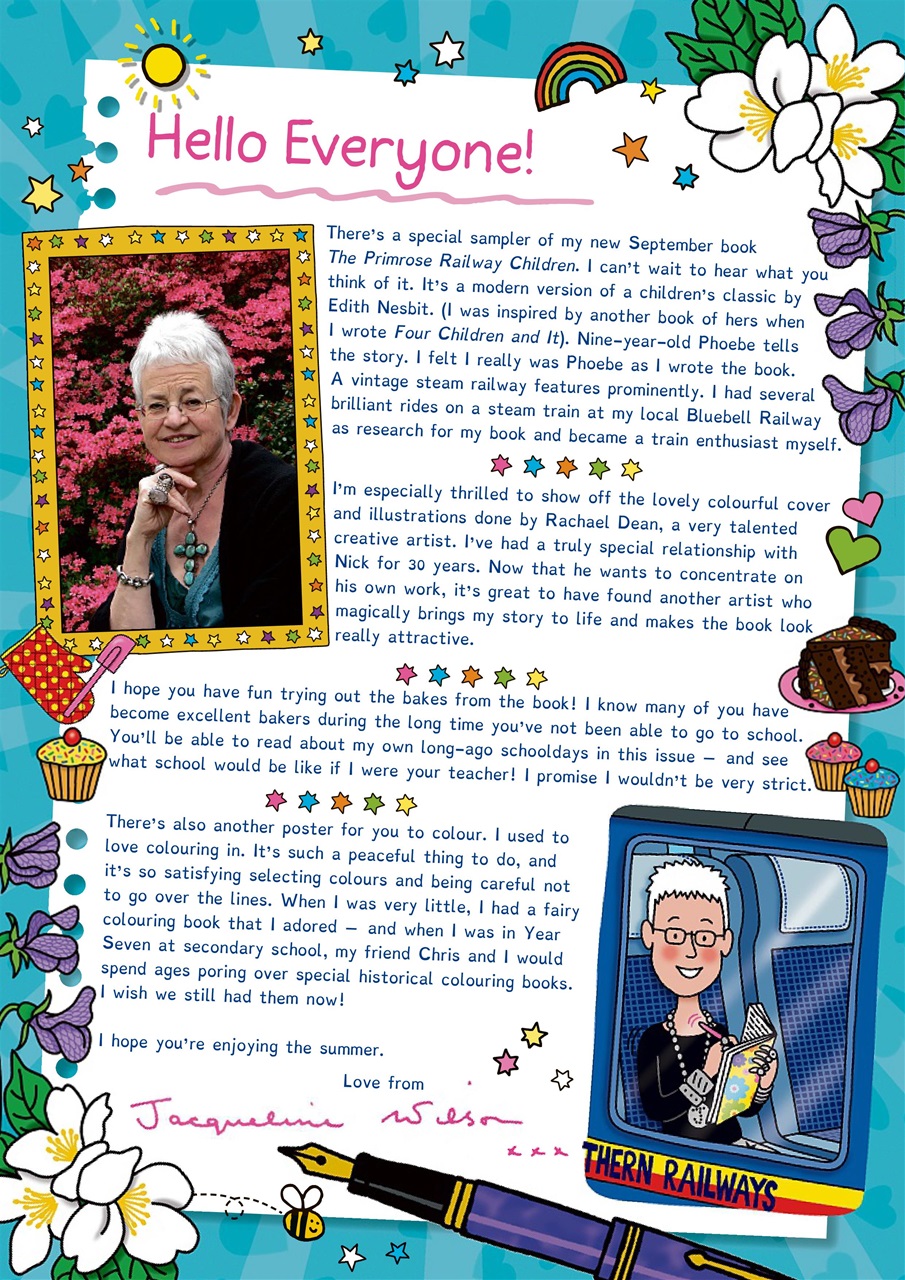 Hello Everyone!
There's a special sampler of my new September book
The Primrose Railway Children. I can't wait to hear what you
think of it. It's a modern version of a children's classic by
Edith Nesbit. (I was inspired by another book of hers when
I wrote Four Children and It). Nine-year-old Phoebe tells
the story. I felt I really was Phoebe as I wrote the book.
A vintage steam railway features prominently. I had several
brilliant rides on a steam train at my local Bluebell Railway
as research for my book and became a train enthusiast myself.
I'm especially thrilled to show off the lovely colourful cover
and illustrations done by Rachael Dean, a very talented
creative artist. I've had a truly special relationship with
Nick for 30 years. Now that he wants to concentrate on
his own work, it's great to have found another artist who
magically brings my story to life and makes the book look
really attractive.
I hope you have fun trying out the bakes from the book! I know many of you have
become excellent bakers during the long time you've not been able to go to school.
You'll be able to read about my own long-ago schooldays in this issue – and see
what school would be like if I were your teacher! I promise I wouldn't be very strict.
There's also another poster for you to colour. I used to
love colouring in. It's such a peaceful thing to do, and
it's so satisfying selecting colours and being careful not
to go over the lines. When I was very little, I had a fairy
colouring book that I adored – and when I was in Year
Seven at secondary school, my friend Chris and I would
spend ages poring over special historical colouring books.
I wish we still had them now!
I hope you're enjoying the summer.
Love from
Jacqueline Wilson
x x x
THERN RAILWAYS